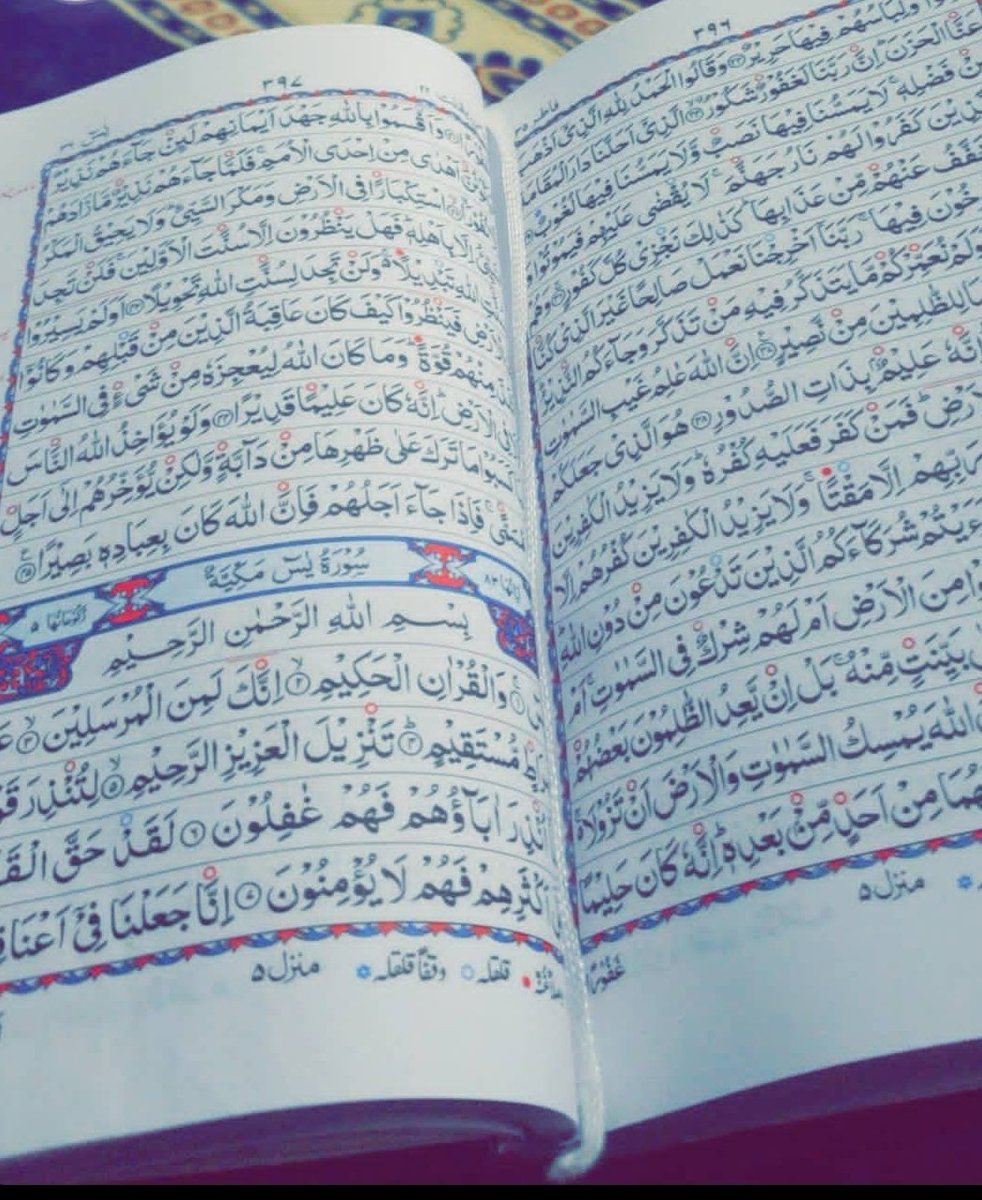 ٣٩٦
وَلِبَاسُهُمْ فِيْهَا حَرِيْرٌ ﴿٣٣﴾ وَقَالُوا الْحَمْدُ لِلّٰهِ الَّذِيْٓ اَذْهَبَ
عَنَّا الْحَزَنَ ؕ اِنَّ رَبَّنَا لَغَفُوْرٌ شَكُوْرٌ ﴿٣٤﴾ الَّذِيْٓ اَحَلَّنَا دَارَ الْمُقَامَةِ
مِنْ فَضْلِهٖ ۚ لَا يَمَسُّنَا فِيْهَا نَصَبٌ وَّلَا يَمَسُّنَا فِيْهَا لُغُوْبٌ
كَفَرُوْا لَهُمْ نَارُ جَهَنَّمَ ۚ لَا يُقْضٰى عَلَيْهِمْ فَيَمُوْتُوْا
عَنْهُمْ مِّنْ عَذَابِهَا ؕ كَذٰلِكَ نَجْزِيْ كُلَّ كَفُوْرٍ ﴿٣٦﴾ وَهُمْ
فِيْهَا ۚ رَبَّنَآ اَخْرِجْنَا نَعْمَلْ صَالِحًا غَيْرَ الَّذِيْ كُنَّا
نُعَمِّرْكُمْ مَّا يَتَذَكَّرُ فِيْهِ مَنْ تَذَكَّرَ وَجَآءَكُمُ النَّذِيْرُ
لِلظّٰلِمِيْنَ مِنْ نَّصِيْرٍ ﴿٣٧﴾ اِنَّ اللّٰهَ عٰلِمُ غَيْبِ السَّمٰوٰتِ
اِنَّهٗ عَلِيْمٌۢ بِذَاتِ الصُّدُوْرِ ﴿٣٨﴾ هُوَ الَّذِيْ جَعَلَكُمْ
فَمَنْ كَفَرَ فَعَلَيْهِ كُفْرُهٗ ؕ وَلَا يَزِيْدُ الْكٰفِرِيْنَ
رَبِّهِمْ اِلَّا مَقْتًا ۚ وَلَا يَزِيْدُ الْكٰفِرِيْنَ كُفْرُهُمْ اِلَّا
شُرَكَآءَكُمُ الَّذِيْنَ تَدْعُوْنَ مِنْ دُوْنِ اللّٰهِ
مِنَ الْاَرْضِ اَمْ لَهُمْ شِرْكٌ فِي السَّمٰوٰتِ ۚ اَمْ
بَيِّنَتٍ مِّنْهُ ۚ بَلْ اِنْ يَّعِدُ الظّٰلِمُوْنَ بَعْضُهُمْ
اللّٰهَ يُمْسِكُ السَّمٰوٰتِ وَالْاَرْضَ اَنْ تَزُوْلَا
مِنْ اَحَدٍ مِّنْۢ بَعْدِهٖ ؕ اِنَّهٗ كَانَ حَلِيْمًا
منزل ٥
غَفُوْرًا
٣٩٧
وَاَقْسَمُوْا بِاللّٰهِ جَهْدَ اَيْمَانِهِمْ لَئِنْ جَآءَهُمْ نَذِيْرٌ
اَهْدٰى مِنْ اِحْدَى الْاُمَمِ ۚ فَلَمَّا جَآءَهُمْ نَذِيْرٌ مَّا زَادَهُمْ
نُفُوْرًا ﴿٤٢﴾ اسْتِكْبَارًا فِي الْاَرْضِ وَمَكْرَ السَّيِّئِ ؕ وَلَا يَحِيْقُ الْمَكْرُ
اِلَّا بِاَهْلِهٖ ؕ فَهَلْ يَنْظُرُوْنَ اِلَّا سُنَّتَ الْاَوَّلِيْنَ ۚ فَلَنْ تَجِدَ
اللّٰهِ تَبْدِيْلًا ۚ وَلَنْ تَجِدَ لِسُنَّتِ اللّٰهِ تَحْوِيْلًا ﴿٤٣﴾ اَوَلَمْ يَسِيْرُوْا
الْاَرْضِ فَيَنْظُرُوْا كَيْفَ كَانَ عَاقِبَةُ الَّذِيْنَ مِنْ قَبْلِهِمْ وَكَانُوْٓا
مِنْهُمْ قُوَّةً ؕ وَمَا كَانَ اللّٰهُ لِيُعْجِزَهٗ مِنْ شَيْءٍ فِي السَّمٰوٰتِ
فِي الْاَرْضِ ؕ اِنَّهٗ كَانَ عَلِيْمًا قَدِيْرًا ﴿٤٤﴾ وَلَوْ يُؤَاخِذُ اللّٰهُ النَّاسَ
كَسَبُوْا مَا تَرَكَ عَلٰى ظَهْرِهَا مِنْ دَآبَّةٍ وَّلٰكِنْ يُّؤَخِّرُهُمْ اِلٰٓى اَجَلٍ
مُّسَمًّى ۚ فَاِذَا جَآءَ اَجَلُهُمْ فَاِنَّ اللّٰهَ كَانَ بِعِبَادِهٖ بَصِيْرًا ﴿٤٥﴾
اٰيَاتُهَا ٨٣ سُوْرَةُ يٰسٓ مَكِّيَّةٌ رُكُوْعَاتُهَا ٥
بِسْمِ اللّٰهِ الرَّحْمٰنِ الرَّحِيْمِ
﴿١﴾ وَالْقُرْاٰنِ الْحَكِيْمِ ﴿٢﴾ اِنَّكَ لَمِنَ الْمُرْسَلِيْنَ ﴿٣﴾
مُّسْتَقِيْمٍ ﴿٤﴾ تَنْزِيْلَ الْعَزِيْزِ الرَّحِيْمِ ﴿٥﴾ لِتُنْذِرَ
اُنْذِرَ اٰبَآؤُهُمْ فَهُمْ غٰفِلُوْنَ ﴿٦﴾ لَقَدْ حَقَّ
اَكْثَرِهِمْ فَهُمْ لَا يُؤْمِنُوْنَ ﴿٧﴾ اِنَّا جَعَلْنَا فِيْٓ
قلقلہ وقفًا قلقلہ منزل ٥